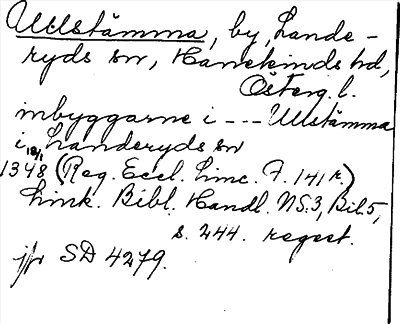 Ullstämma, by, Lande-
ryds sn, Hanekinds hd,
Österg. l.
inbyggarne i --- Ullstämma
i Landeryds sn
1348 18/1 (Reg. Eccl. Linc. F. 141 r.)
Link. Bibl. Handl. NS. 3, Bil. 5,
s. 244. regest.
jfr SD 4279.